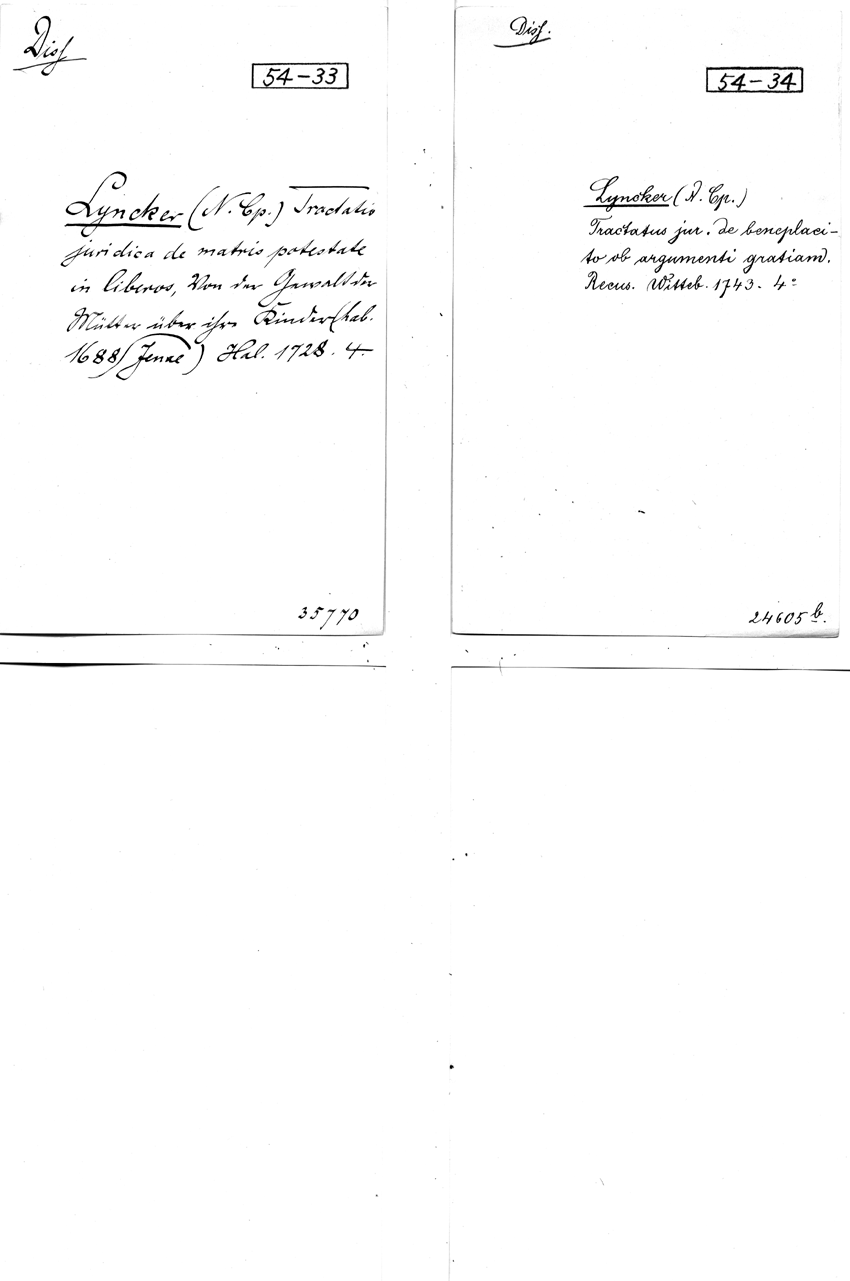 Diss
54-33
Lyncker (N. Cp.) Tractatio
juridica de matris potestate
in liberos, Von der Gewalt der
Mütter über ihre Kinder (hab.
1688 Jenae) Hal. 1728. 4.
35770
Diss.
54-34
Lyncker (N. Cp.)
Tractatus jur. de beneplaci-
to ob argumenti gratiam.
Recus. Witteb. 1743. 4°
24605 b.